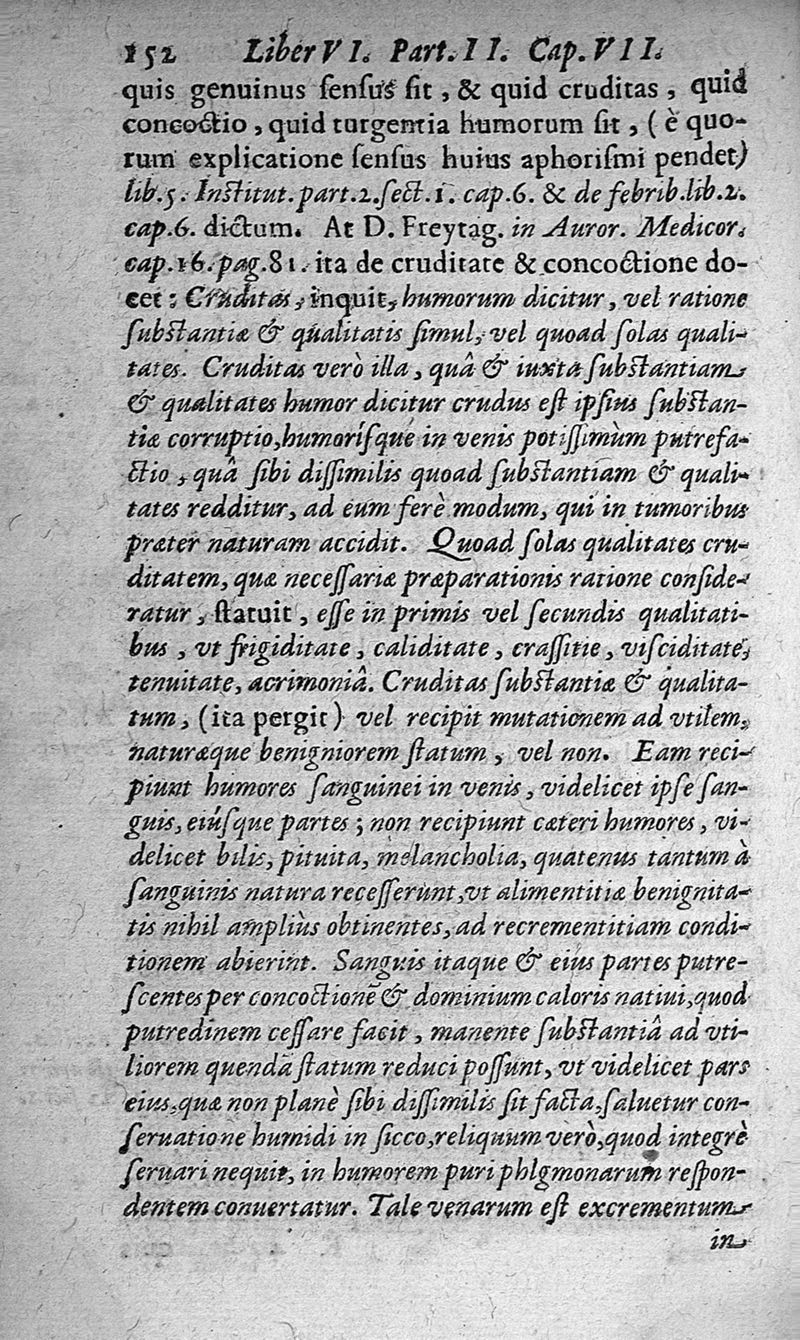 152 Liber VI. Part. II. Cap. VII.
quis genuinus ſenſus ſit, & quid cruditas, quid
concoctio, quid turgentia humorum ſit, (è quo-
rum explicatione ſenſus huius aphoriſmi pendet)
lib.5. Inſtitut.part.2.ſect.1. cap.6. & de febrib.lib.2.
cap.6. dictum. At D. Freytag. in Auror. Medicor.
cap.16.pag.81. ita de cruditate & concoctione do-
cet: Cruditas, inquit, humorum dicitur, vel ratione
ſubſtantiæ & qualitatis ſimul, vel quoad ſolas quali-
tates. Cruditas verò illa, quâ & iuxta ſubſtantiam
& qualitates humor dicitur crudus eſt ipſius ſubſtan-
tiæ corruptio,humoríſque in venis potiſſimùm putrefa-
ctio, quâ ſibi diſſimilis quoad ſubſtantiam & quali-
tates redditur, ad eum ferè modum, qui in tumoribus
præter naturam accidit. Quoad ſolas qualitates cru-
ditatem, quæ neceſſariæ præparationis ratione conſide-
ratur, ſtatuit, eſſe in primis vel ſecundis qualitati-
bus, vt frigiditate, caliditate, craſſitie, viſciditate,
tenuitate, acrimoniâ. Cruditas ſubſtantiæ & qualita-
tum, (ita pergit) vel recipit mutationem ad vtilem,
naturæque benigniorem ſtatum, vel non. Eam reci-
piunt humores ſanguinei in venis, videlicet ipſe ſan-
guis, eiúſque partes; non recipiunt cæteri humores, vi-
delicet bilis, pituita, melancholia, quatenus tantum à
ſanguinis natura receſſerunt,vt alimentitiæ benignita-
tis nihil ampliùs obtinentes, ad recrementitiam condi-
tionem abierint. Sanguis itaque & eius partes putre-
ſcentes per concoctionē & dominium caloris natiui,quod
putredinem ceſſare facit, manente ſubſtantiâ ad vti-
liorem quendā ſtatum reduci poſſunt, vt videlicet pars
eius,quæ non planè ſibi diſſimilis ſit facta,ſaluetur con-
ſeruatione humidi in ſicco,reliquum verò,quod integrè
ſeruari nequit, in humorem puri phlgmonarum reſpon-
dentem conuertatur. Tale venarum eſt excrementum
in